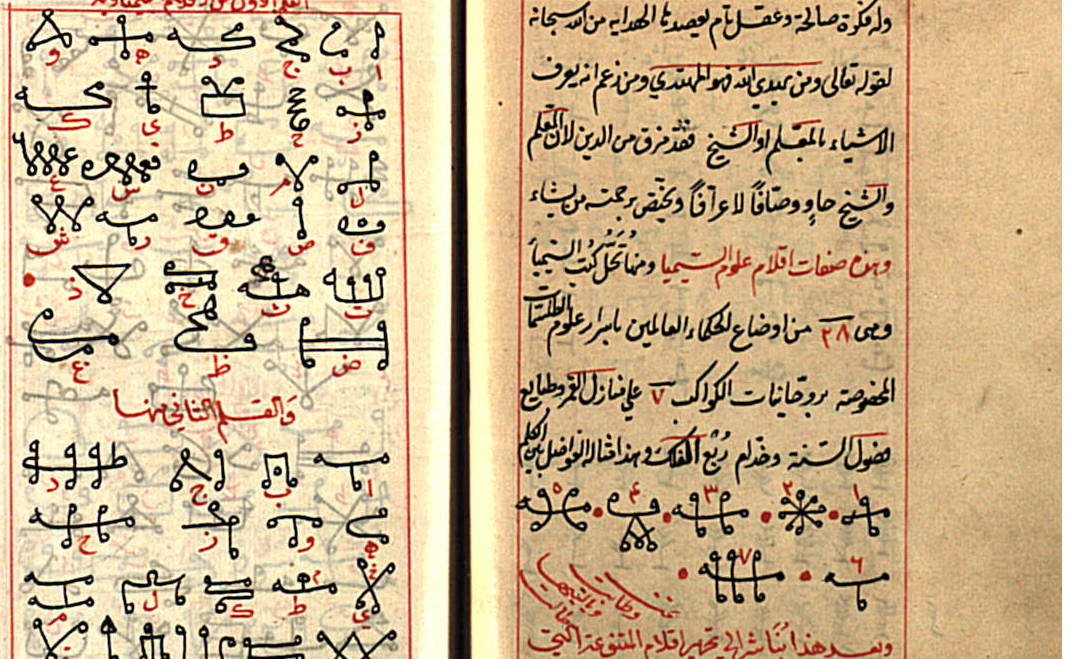 وله فكرة صالحة وعقل تام يعصد بها الهداية من الله سبحانه
لقوله تعالى ومن يهدي الله فهو المهتدي ومن زعم انه يعرف
الاشياء بالمعلم او الشيخ فقد مرق من الدين لان المعلم
والشيخ حاوٍ وصّافاً لا عرّافاً ويختص برحمته من يشاء
وهذه صفات اقلام علوم السيميا ومنها تُحل كتب السيميا
وهى ٢٨ من اوضاع الحكماء العالمين باسرار علوم الطلسمات
بروحانيات الكواكب ٧ على منازل القمر وطبايع
فصول السنة وخدام ربع الفلك وهذا مثاله
١ ٢ ٣ ۴ ٥
٦ ٧
وبعد هذا اقلام المتنوعة التي
ا ب ج د ه و
ز ح ط ي ك
ل م ن س ع
ف ص ق ر ش
ت ث خ ذ
ض ظ غ
والقلم الثاني منها
ا ب ج د
ه و ز ح
ي ط ك ل م